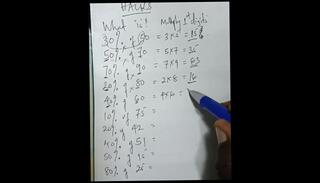 HACKS
What is? Multiply 1st digits
30% of 50 = 3 x 5 = 15
50% of 70 = 5 x 7 = 35
70% of 90 = 7 x 9 = 63
20% of 80 = 2 x 8 = 16
40% of 60 = 4 x 6 =
10% of 75 =
20% of 42 =
40% of 51 =
50% of 15 =
80% of 25 =